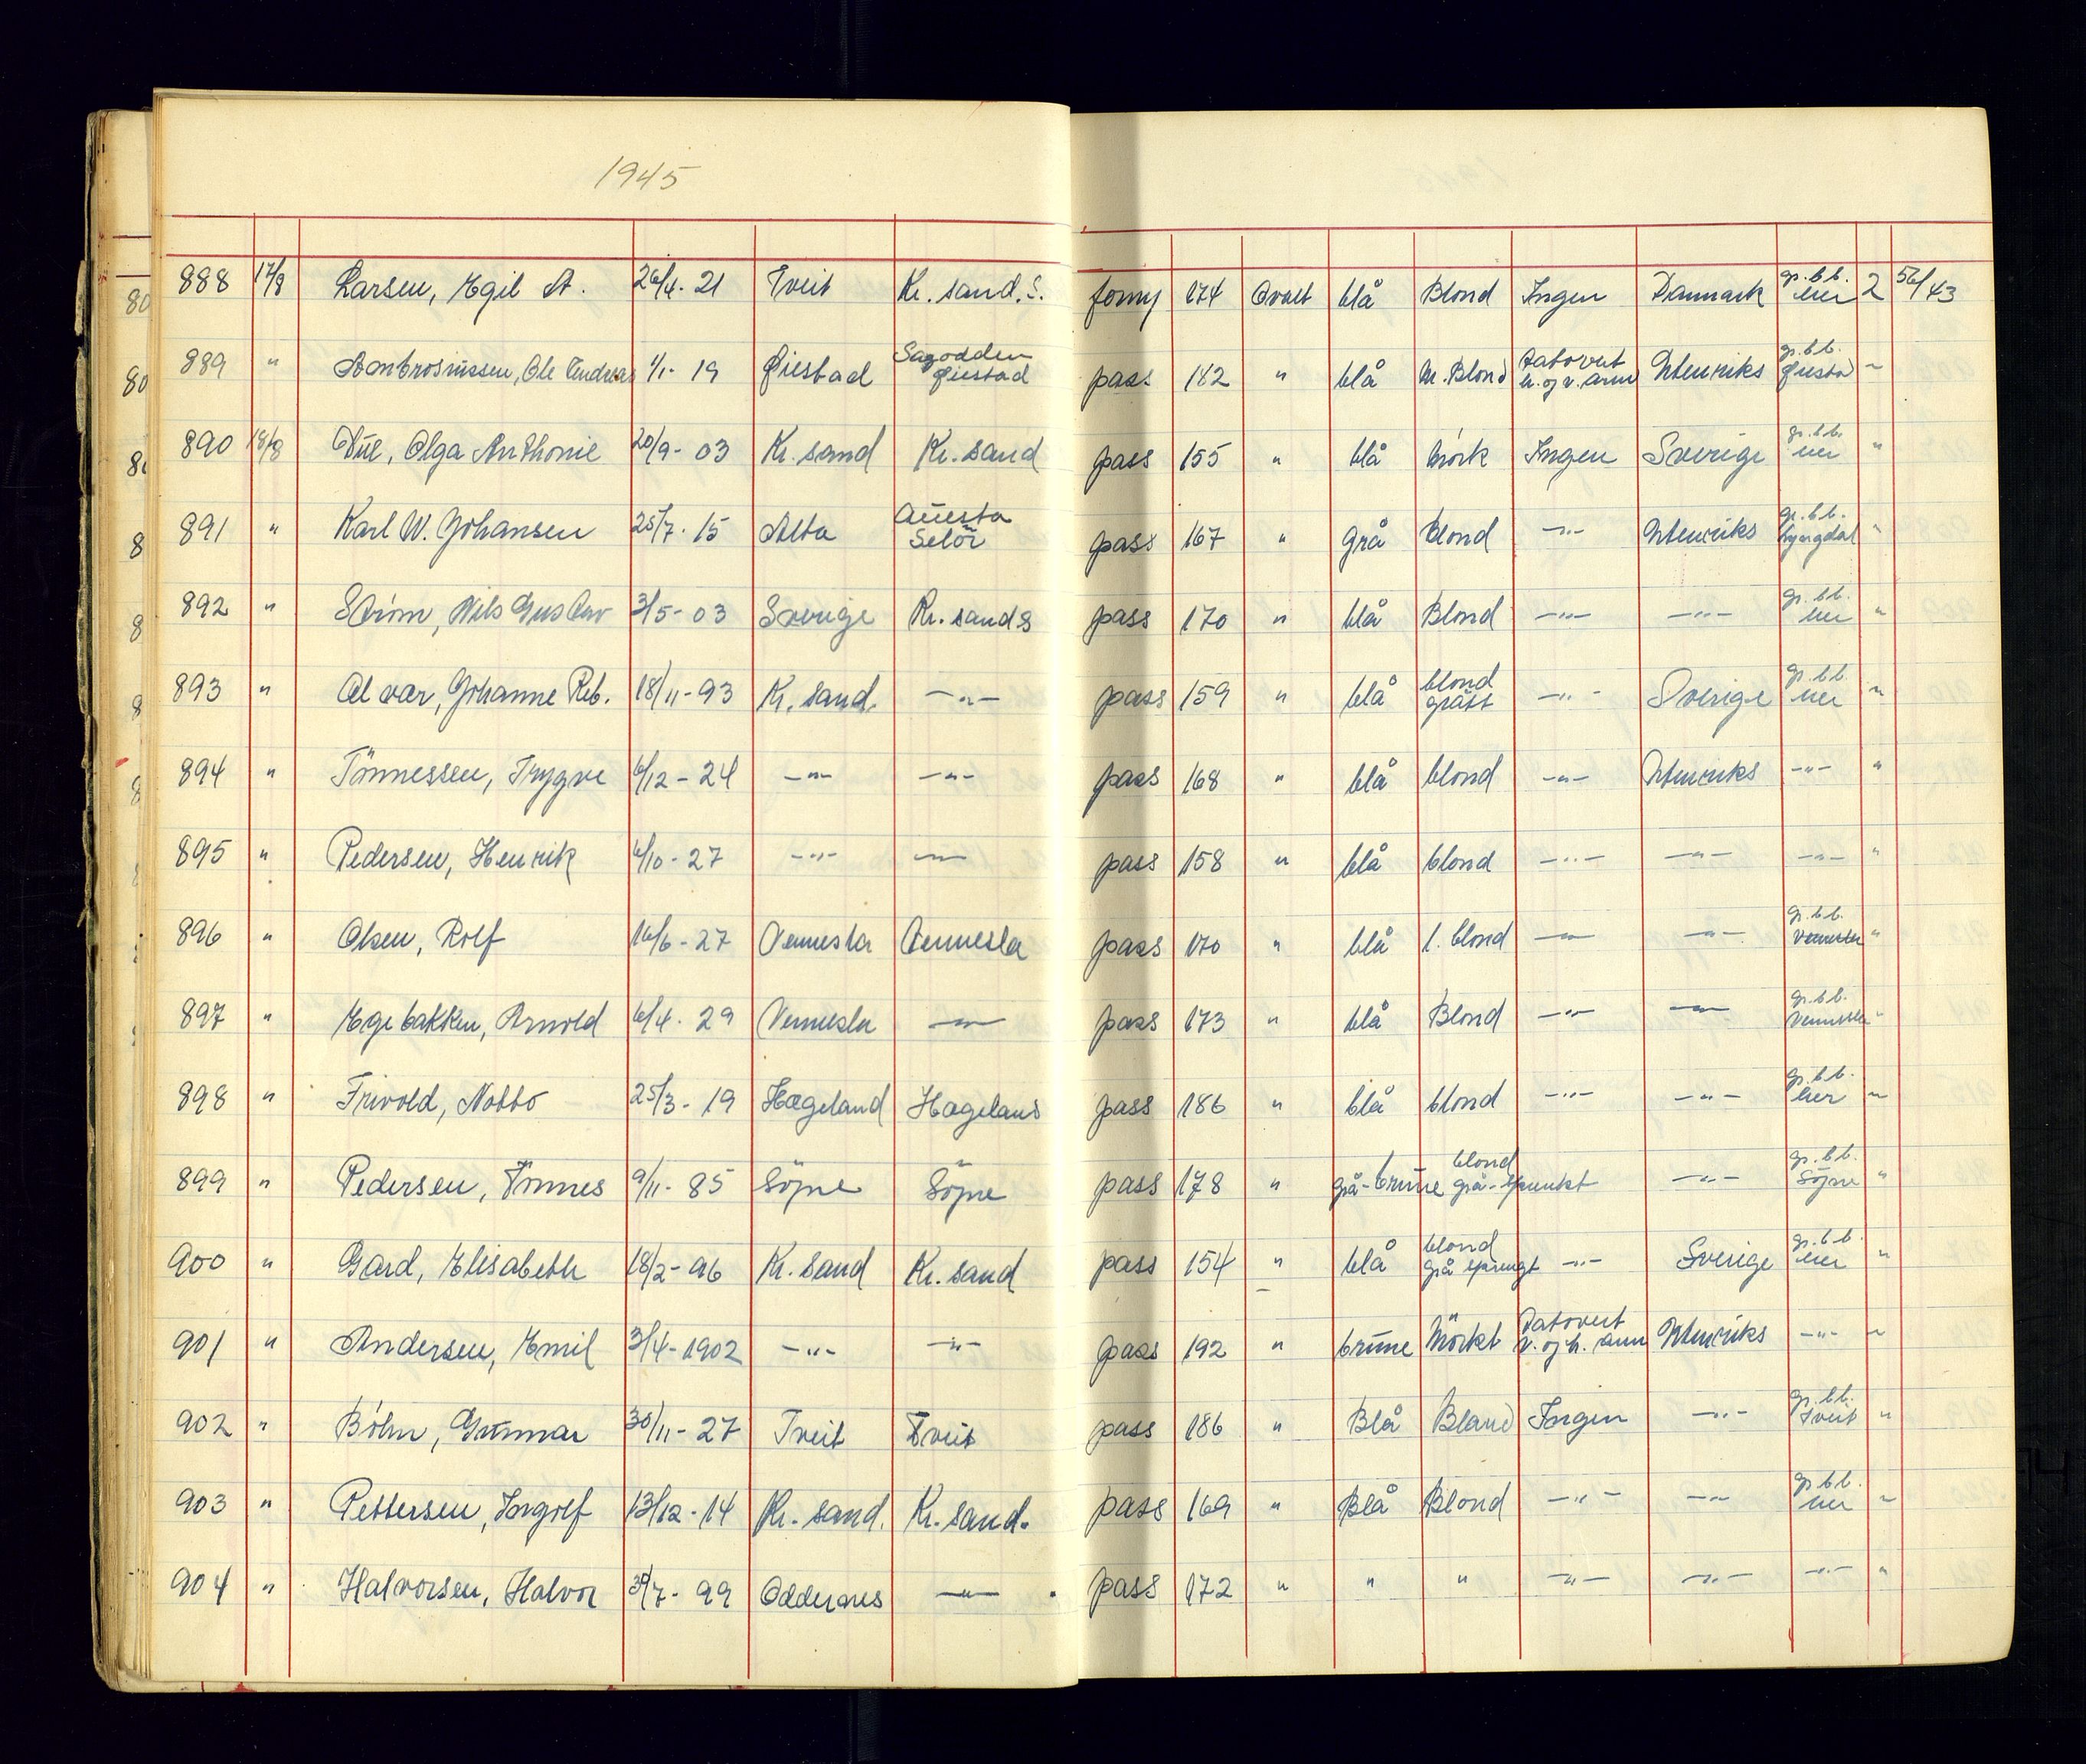 1945
888 17/8 Larsen, Egil A. 26/4-21 Tveit Kr. sand. S. forny 174 Ovalt blå Blond Ingen Danmark gr.b.b. her 2 56/43
889 " Ambrosiussen, Ole Andreas 1/1-19 Øiestad Sagodden Øiestad pass 182 " blå M. Blond Tatovert h. og v. arm Utenriks gr.b.b. Øiestad "
890 18/8 Olga Anthonie 20/9-03 Kr. sand Kr. sand pass 155 " blå Mörk Ingen Sverige gr.b.b. her "
891 " Karl W. Johansen 25/7-15 Alta Austa Selör pass 167 " grå Blond -"- Utenriks gr.b.b. Lyngdal "
892 " Ström, Nils Gustav 3/5-03 Sverige Kr. sand S pass 170 " blå Blond -"- -"- gr.b.b. her "
893 " Alvær, Johanne Reb. 18/11-93 Kr. sand. -"- pass 159 " blå blond grått -"- Sverige gr.b.b. her "
894 " Tönnessen, Trygve 6/12-24 -"- -"- pass 168 " blå blond -"- Utenriks -"- "
895 " Pedersen, Henrik 6/10-27 -"- -"- pass 158 " blå blond -"- -"- -"- "
896 " Olsen, Rolf 16/6-27 Vennesla Vennesla pass 170 " blå l. blond -"- -"- gr.b.b. Vennesla "
897 " Egebakken, Arnold 6/4-29 Vennesla -"- pass 173 " blå Blond -"- -"- gr.b.b. Vennesla "
898 " Frivold, Notto 25/3-19 Hægeland Hægeland pass 186 " blå blond -"- -"- gr.b.b. her "
899 " Pedersen, Tönnes 9/11-85 Söjne Söjne pass 178 " grå-brune blond grå-sprenkt -"- gr.b.b. Söjne "
900 " Gard, Elisabeth 18/2-96 Kr. sand Kr. sand pass 154 " blå blond grå sprengt -"- Sverige gr.b.b. her "
901 " Andersen, Emil 3/4-1902 -"- -"- pass 192 " brune Mörkt Tatovert v. og h. arm Utenriks -"- "
902 " Böhn, Gunnar 30/11-27 Tveit Tveit pass 186 " Blå Blond Ingen -"- gr.b.b. Tveit "
903 " Pettersen, Ingolf 13/12-14 Kr. sand. Kr. sand. pass 169 " Blå Blond -"- -"- gr.b.b. her "
904 " Halvorsen, Halvor 30/7-99 Oddernes -"- pass 172 " " " -"- -"- -"- "